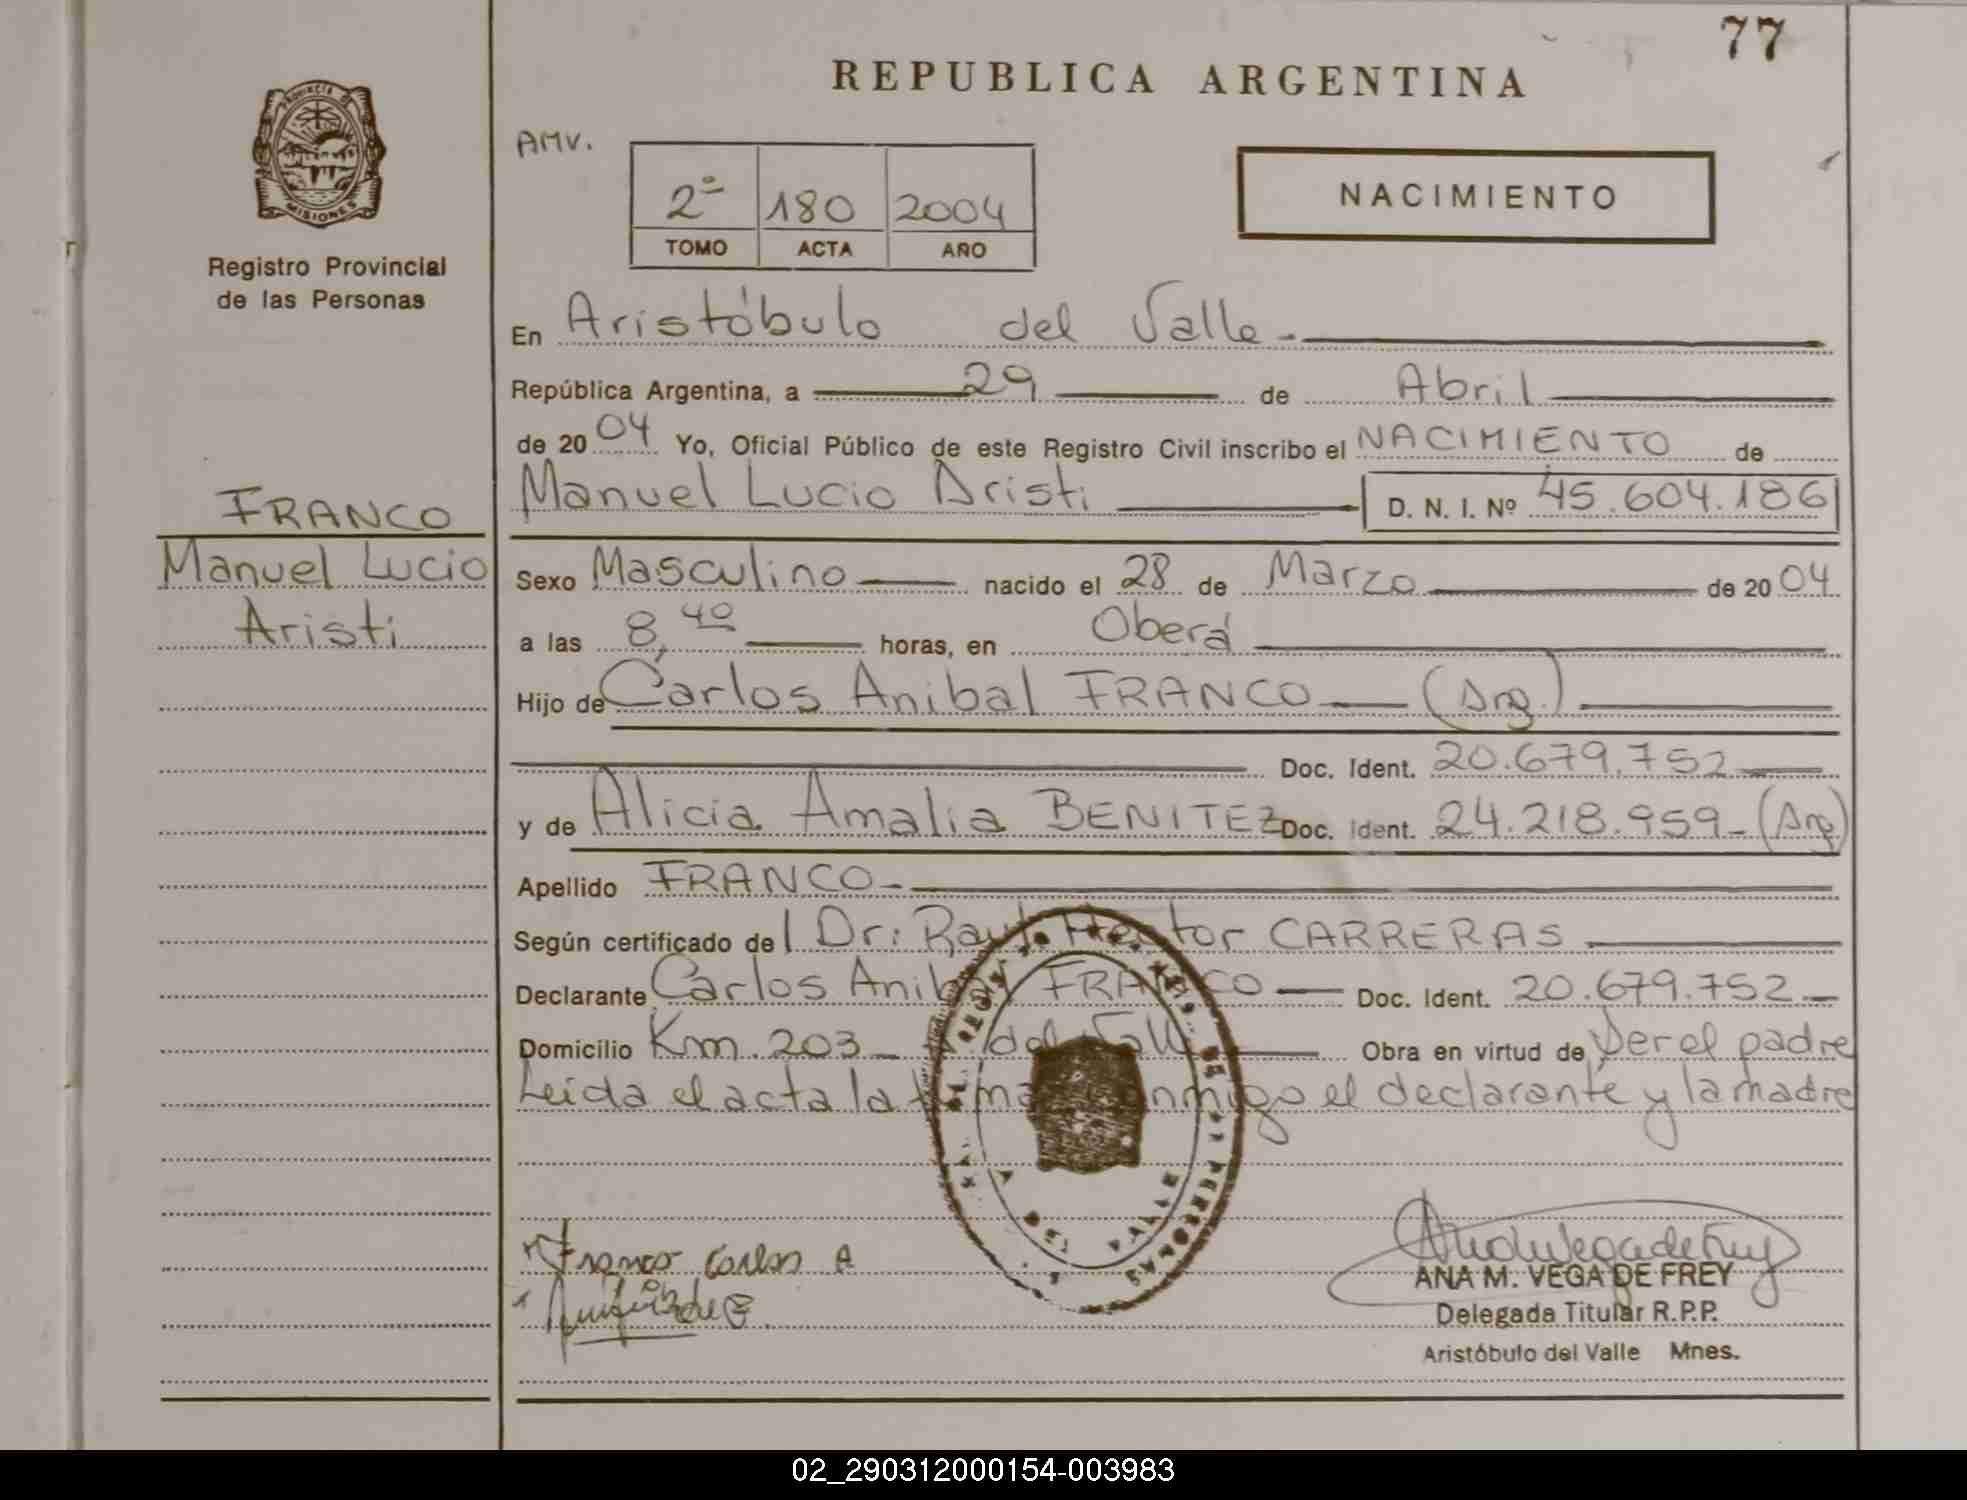 77
REPUBLICA ARGENTINA
PROVINCIA DE
MISIONES
Registro Provincial
de las Personas
AMV.
2º 180 2004
TOMO ACTA AÑO
NACIMIENTO
En Aristóbulo del Valle.-
República Argentina, a 29 de Abril
de 2004 Yo, Oficial Público de este Registro Civil inscribo el NACIMIENTO de
Manuel Lucio Aristi D. N. I. Nº 45.604.186
FRANCO
Manuel Lucio
Aristi
Sexo Masculino nacido el 28 de Marzo de 2004
a las 8,40 horas, en Oberá
Hijo de Carlos Anibal FRANCO (Arg.)
Doc. Ident. 20.679.752
y de Alicia Amalia BENITEZ Doc. Ident. 24.218.959- (Arg)
Apellido FRANCO-
Según certificado del Dr: Raul Hector CARRERAS
Declarante Carlos Anibal FRANCO Doc. Ident. 20.679.752-
Domicilio Km. 203- A. del Valle Obra en virtud de Ser el padre
Leida el acta la firma conmigo el declarante y la madre
Franco Carlos A
ANA M. VEGA DE FREY
Delegada Titular R.P.P.
Aristóbulo del Valle Mnes.
02_290312000154-003983